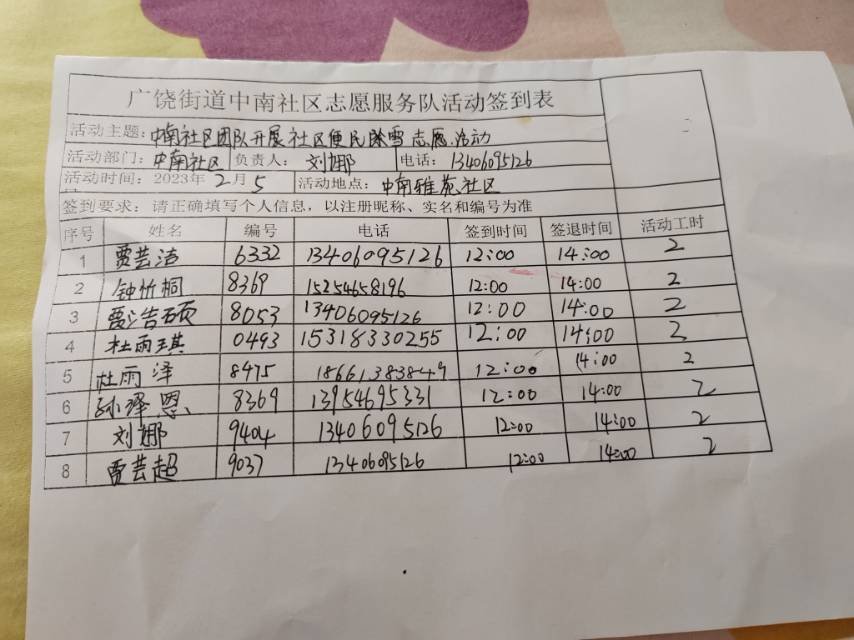 广饶街道中南社区志愿服务队活动签到表
活动主题：中南社区团队开展社区便民除雪志愿活动
活动部门：中南社区 负责人： 刘娜 电话：13406095126
活动时间：2023年2月5 活动地点：中南雅苑社区
签到要求：请正确填写个人信息，以注册昵称、实名和编号为准
序号 姓名 编号 电话 签到时间 签退时间 活动工时
1 贾芸洁 6332 13406095126 12:00 14:00 2
2 钟忻桐 8369 15254658196 12:00 14:00 2
3 贾浩硕 8053 13406095126 12:00 14:00 2
4 杜雨琪 0493 15318330255 12:00 14:00 2
5 杜雨泽 8475 18661383849 12:00 14:00 2
6 孙泽恩 8369 13954695331 12:00 14:00 2
7 刘娜 9404 13406095126 12:00 14:00 2
8 贾芸超 9037 13406095126 12:00 14:00 2